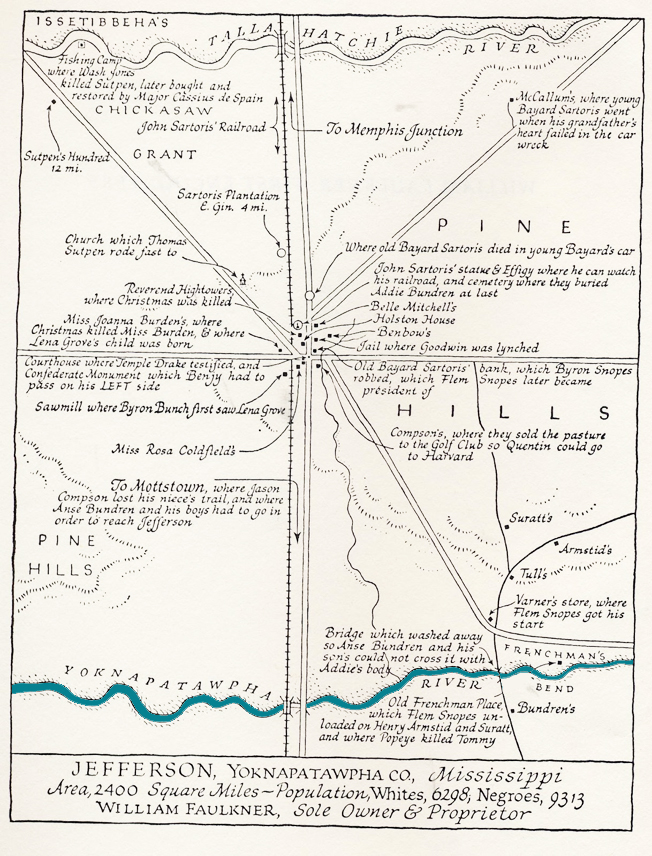 ISSETIBBEHA'S
TALLAHATCHIE
RIVER
Fishing Camp
where Wash Jones
killed Sutpen, later bought and
restored by Major Cassius de Spain
CHICKASAW
John Sartoris' Railroad
To Memphis Junction
McCallum's, where young
Bayard Sartoris went
when his grandfather's
heart failed in the car
wreck
Sutpen's Hundred
12 mi.
GRANT
Sartoris Plantation
& Gin. 4 mi.
PINE
Church which Thomas
Sutpen rode fast to
Where old Bayard Sartoris died in young Bayard's car
John Sartoris' statue & Effigy where he can watch
his railroad, and cemetery where they buried
Addie Bundren at last
Reverend Hightower's,
where Christmas was killed
Belle Mitchell's
Holston House
Benbow's
Jail where Goodwin was lynched
Miss Joanna Burden's, where
Christmas killed Miss Burden, & where
Lena Grove's child was born
Courthouse where Temple Drake testified, and
Confederate Monument which Benjy had to
pass on his LEFT side
Old Bayard Sartoris' bank, which Byron Snopes
robbed, which Flem Snopes later became
president of
Sawmill where Byron Bunch first saw Lena Grove
HILLS
Compson's, where they sold the pasture
to the Golf Club so Quentin could go
to Harvard
Miss Rosa Coldfield's
To Mottstown, where Jason
Compson lost his niece's trail, and where
Anse Bundren and his boys had to go in
order to reach Jefferson
PINE
HILLS
Suratt's
Armstid's
Tull's
Varner's store, where
Flem Snopes got his
start
Bridge which washed away
so Anse Bundren and his
sons could not cross it with
Addie's body
FRENCHMAN'S
BEND
YOKNAPATAWPHA
RIVER
Old Frenchman Place,
which Flem Snopes un-
loaded on Henry Armstid and Suratt,
and where Popeye killed Tommy
Bundren's
JEFFERSON, YOKNAPATAWPHA CO, Mississippi
Area, 2400 Square Miles - Population, Whites, 6298; Negroes, 9313
WILLIAM FAULKNER, Sole Owner & Proprietor